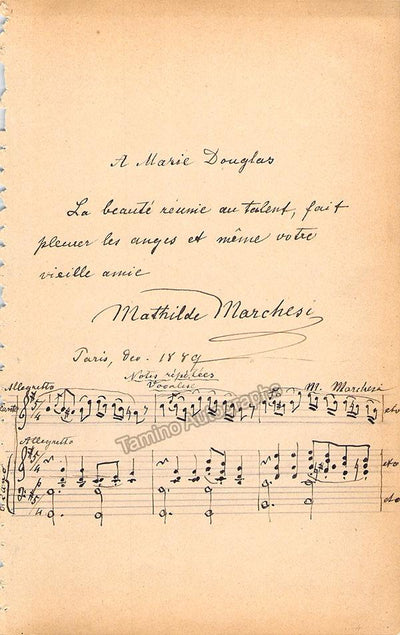 A Marie Douglas
La beauté réunie au talent, fait
pleurer les anges et même votre
vieille amie
Mathilde Marchesi
Paris, dec. 1889
Notes répétées
Vocalise
Allegretto
M. Marchesi
etc
Allegretto
etc
etc
Tamino Autographs